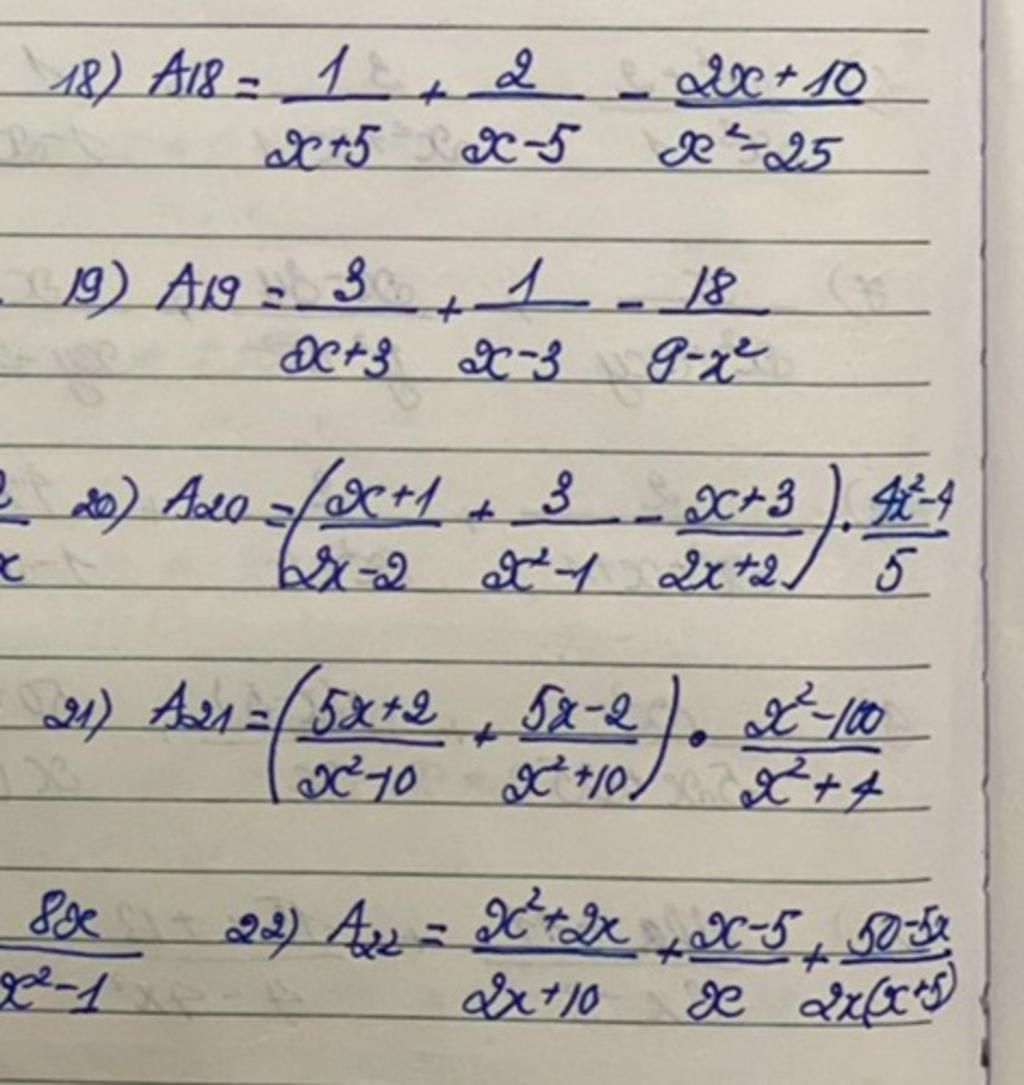 18) A18 = 1/(x+5) + 2/(x-5) - (2x+10)/(x²-25)
19) A19 = 3/(x+3) + 1/(x-3) - 18/(9-x²)
20) A20 = ((x+1)/(2x-2) + 3/(x²-1) - (x+3)/(2x+2)) . (4x²-4)/5
21) A21 = ((5x+2)/(x²-10) + (5x-2)/(x²+10)) . (x²-100)/(x²+4)
8x/(x²-1) 22) A22 = (x²+2x)/(2x+10) + (x-5)/x + (50-5x)/(2x(x+5))